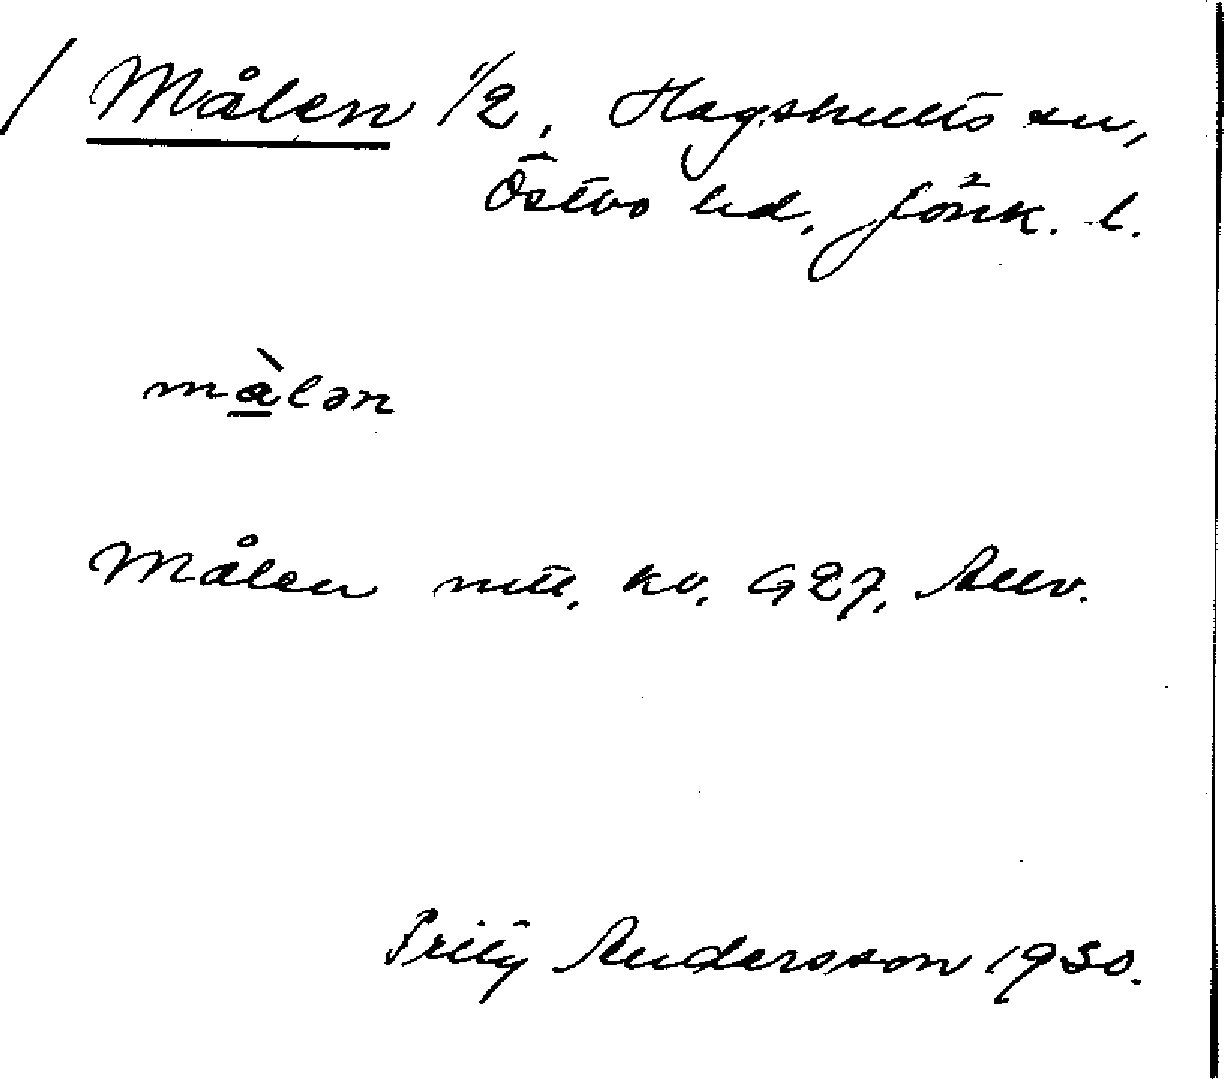 / Målen 1/2, Hagshults sn,
Östbo hd, Jönk. l.
màlən
Målen mtl, kv. G27, Allv.
Fritz Andersson 1930.